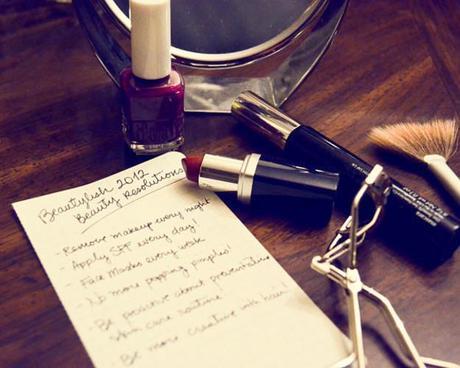 Beautylish 2012
Beauty Resolutions
- Remove makeup every night
- Apply SPF every day!
- Face Masks every week
- No more popping pimples!
- Be proactive about preventative
skin care routine
- Be more creative with hair!